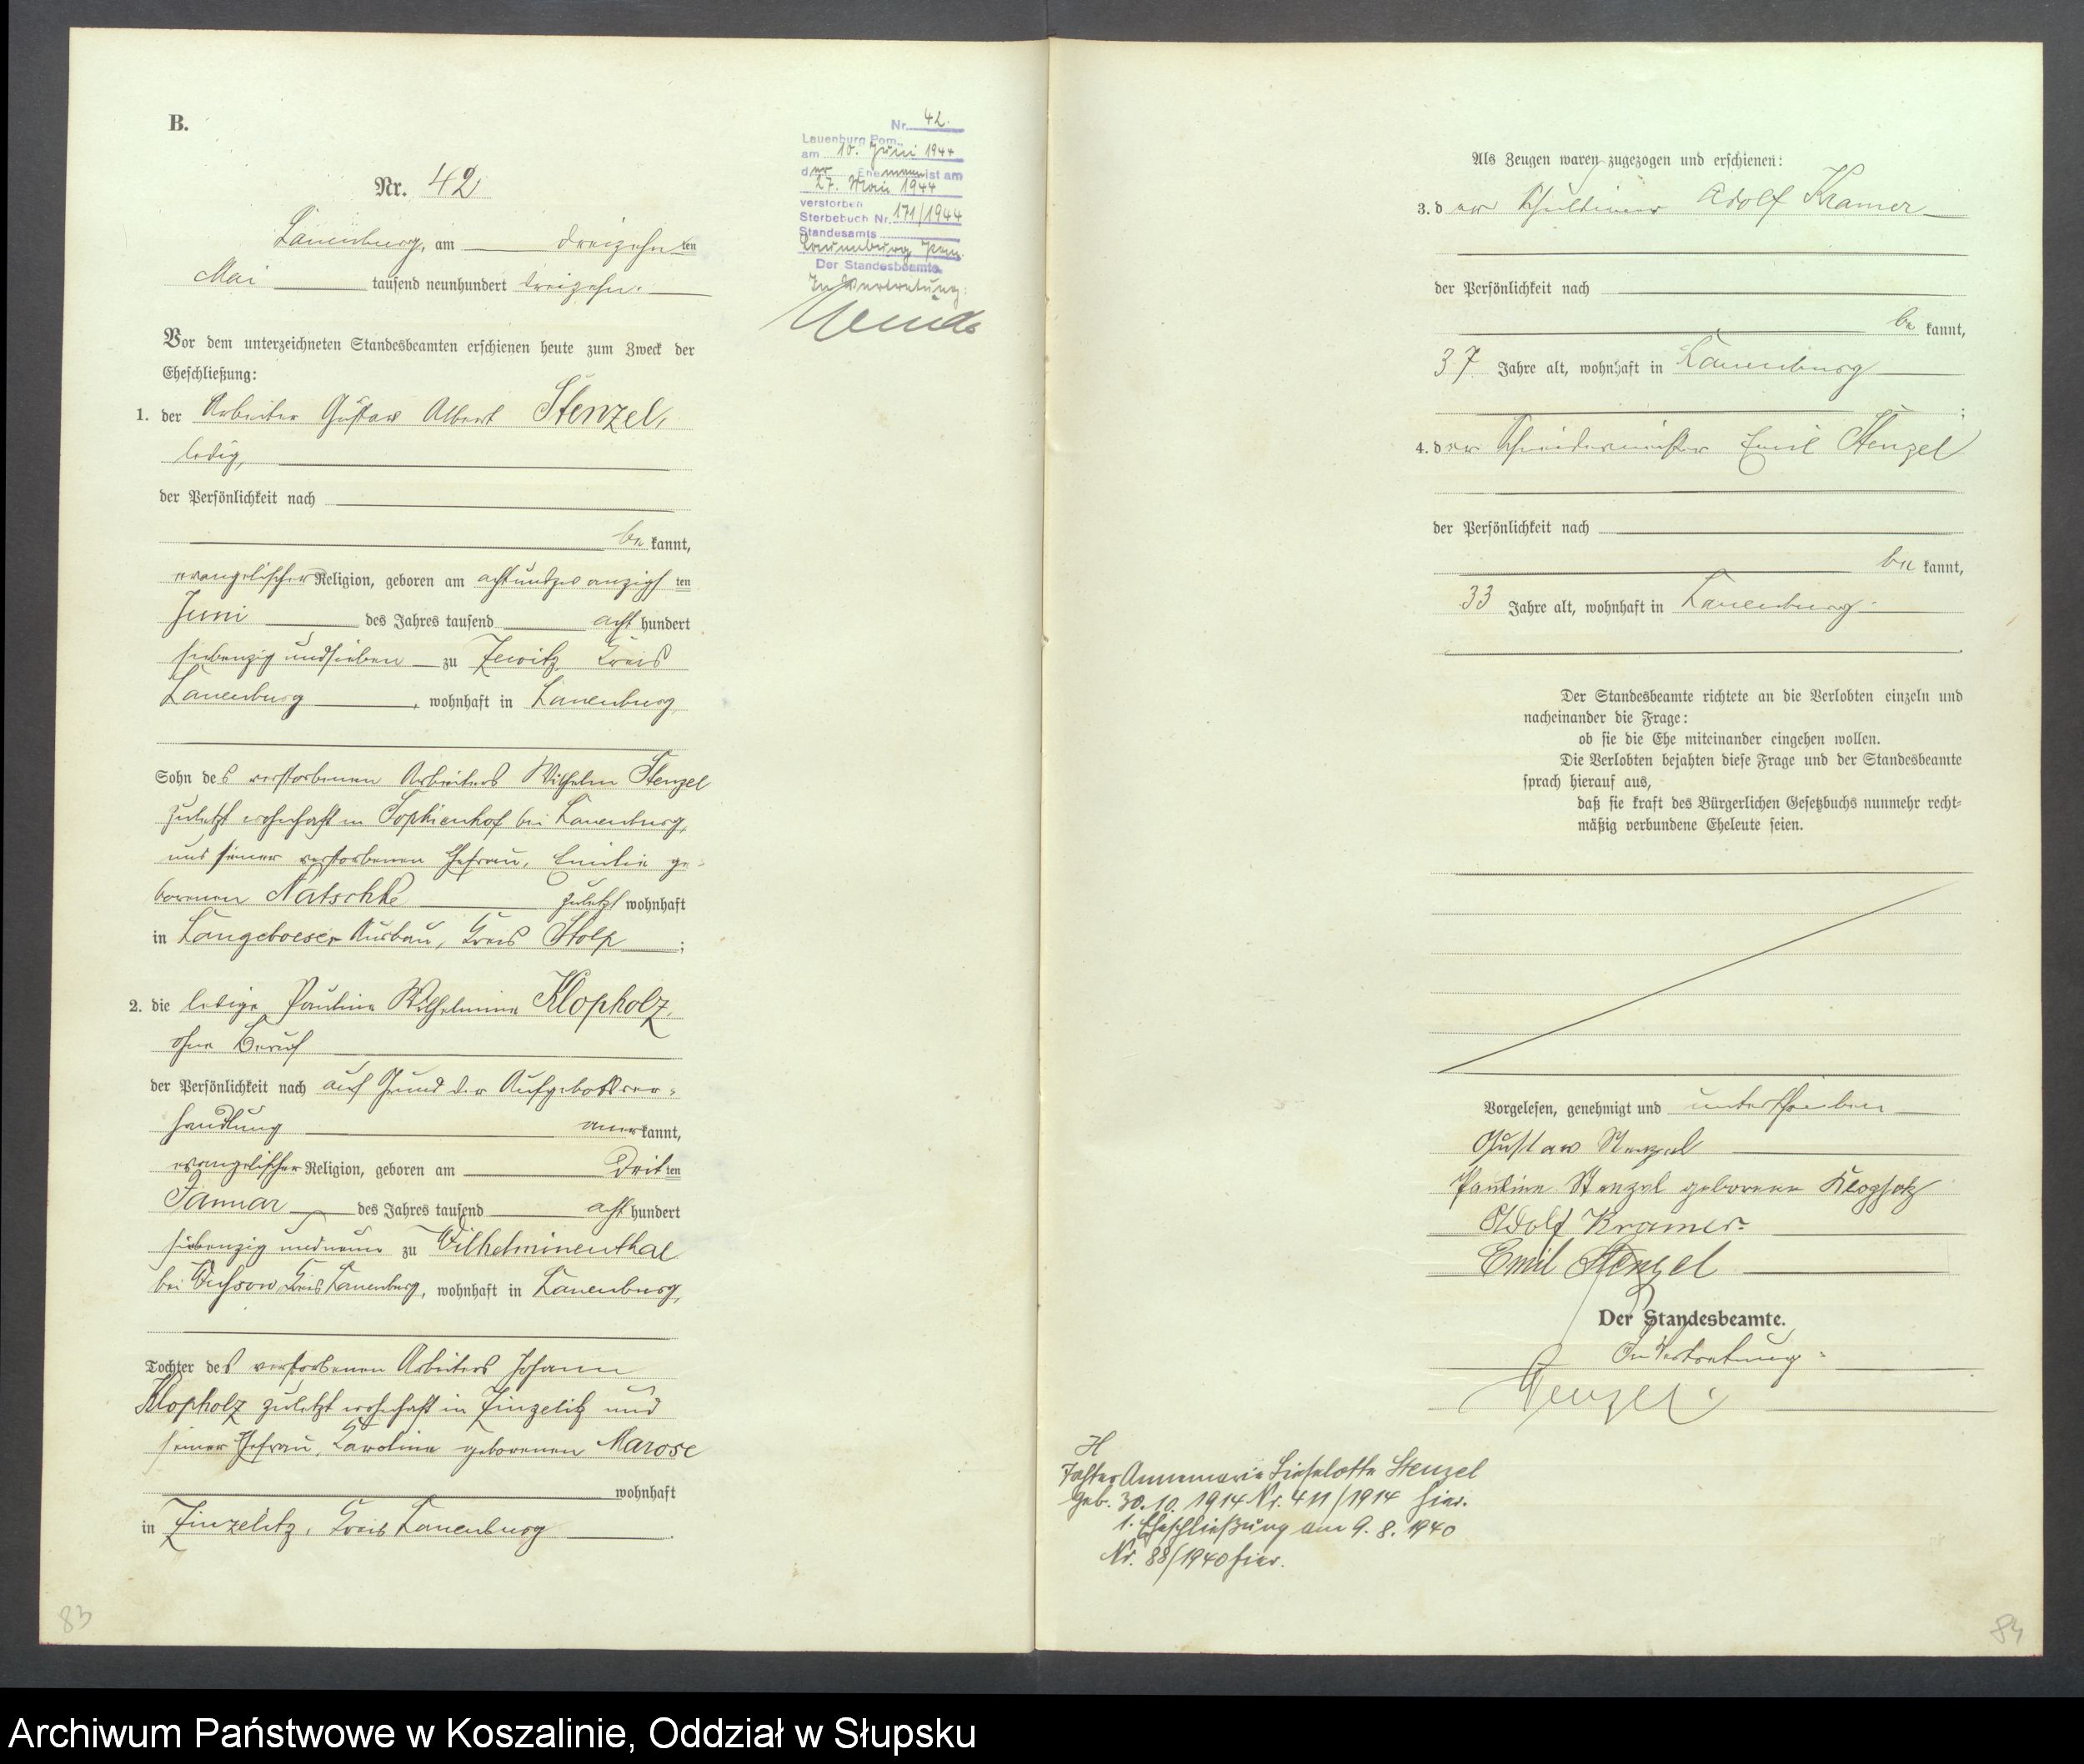 B.
Nr. 42
Lauenburg, am dreizehnten
Mai tausend neunhundert dreizehn.
Vor dem unterzeichneten Standesbeamten erschienen heute zum Zweck der
Eheschließung:
1. der Arbeiter Gustav Albert Stenzel,
ledig,
der Persönlichkeit nach
bekannt,
evangelischer Religion, geboren am achtundzwanzigsten
Juni des Jahres tausend acht hundert
siebenzig und sieben zu Zewitz, Kreis
Lauenburg, wohnhaft in Lauenburg,
Sohn des verstorbenen Arbeiters Wilhelm Stenzel
zuletzt wohnhaft in Sophienhof bei Lauenburg,
und seiner verstorbenen Ehefrau, Emilie ge-
borenen Natschke zuletzt wohnhaft
in Langeboeser Ausbau, Kreis Stolp;
2. die ledige Pauline Wilhelmine Klopholz,
ohne Beruf
der Persönlichkeit nach auf Grund der Aufgebotsver-
handlung anerkannt,
evangelischer Religion, geboren am dritten
Januar des Jahres tausend acht hundert
siebenzig und neun zu Wilhelminenthal
bei Kreis Lauenburg, wohnhaft in Lauenburg,
Tochter des verstorbenen Arbeiters Johann
Klopholz zuletzt wohnhaft in Zinzelitz und
seiner Ehefrau, Karoline geborenen Marose
wohnhaft
in Zinzelitz, Kreis Lauenburg.
83
Nr. 42.
Lauenburg Pom.
am 10. Juni 1944
der Ehemann ist am
27. Mai 1944
verstorben
Sterbebuch Nr. 171/1944
Standesamts
Lauenburg Pom.
Der Standesbeamte.
In Vertretung:
Als Zeugen waren zugezogen und erschienen:
3. der Adolf Kramer
der Persönlichkeit nach
bekannt,
37 Jahre alt, wohnhaft in Lauenburg
;
4. der Schneidermeister Emil Stenzel
der Persönlichkeit nach
bekannt,
33 Jahre alt, wohnhaft in Lauenburg.
Der Standesbeamte richtete an die Verlobten einzeln und
nacheinander die Frage:
ob sie die Ehe miteinander eingehen wollen.
Die Verlobten bejahten diese Frage und der Standesbeamte
sprach hierauf aus,
daß sie kraft des Bürgerlichen Gesetzbuchs nunmehr recht-
mäßig verbundene Eheleute seien.
Vorgelesen, genehmigt und unterschrieben
Gustav Stenzel
Pauline Stenzel geborene Klopholz
Adolf Kramer.
Emil Stenzel
Der Standesbeamte.
In Vertretung:
H
Tochter Annemarie Lieselotte Stenzel
geb. 30.10.1914 Nr. 411/1914 hier.
1. Eheschließung am 9.8.1940
Nr. 88/1940 hier.
84
Archiwum Państwowe w Koszalinie, Oddział w Słupsku